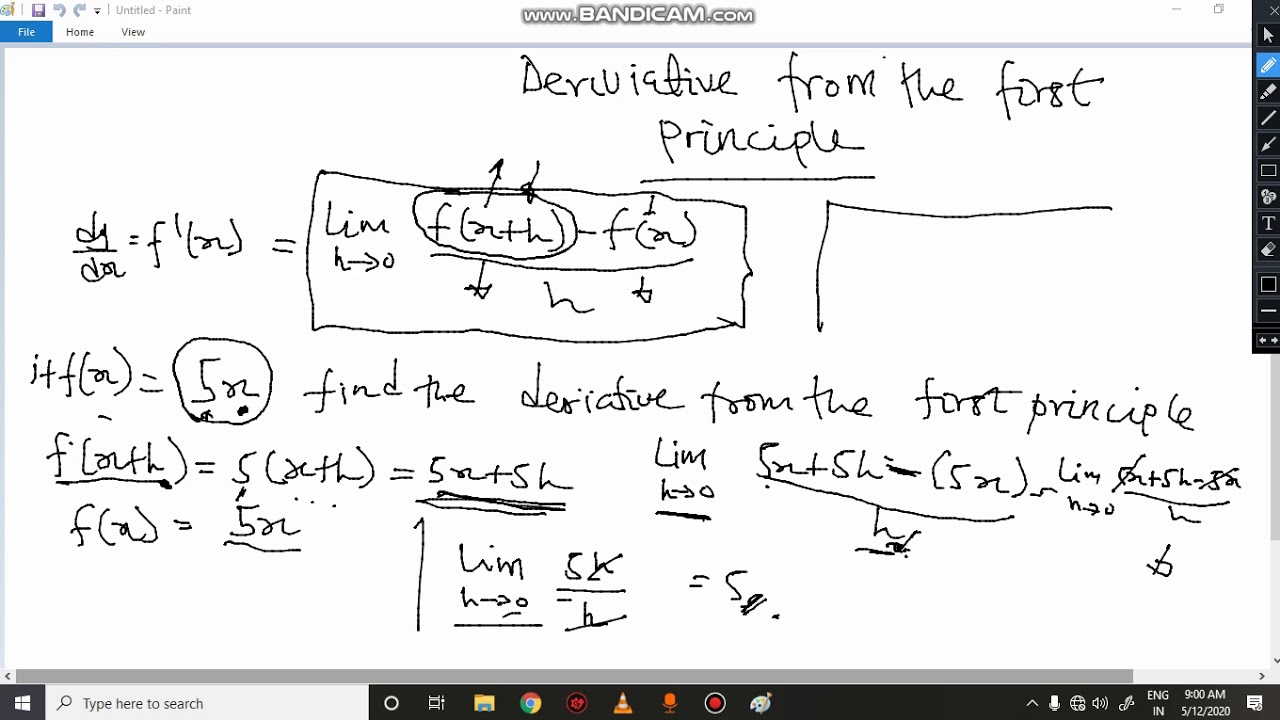 Untitled - Paint
www.BANDICAM.com
File Home View
Derivative from the first
principle
dy/dx = f'(x) = lim h→0 f(x+h) - f(x) / h
if f(x) = 5x find the deriative from the first principle
f(x+h) = 5(x+h) = 5x+5h lim h→0 5x+5h - (5x) / h = lim h→0 5x+5h-5x / h
f(x) = 5x
lim h→0 5h / h = 5
Type here to search
ENG
IN
9:00 AM
5/12/2020